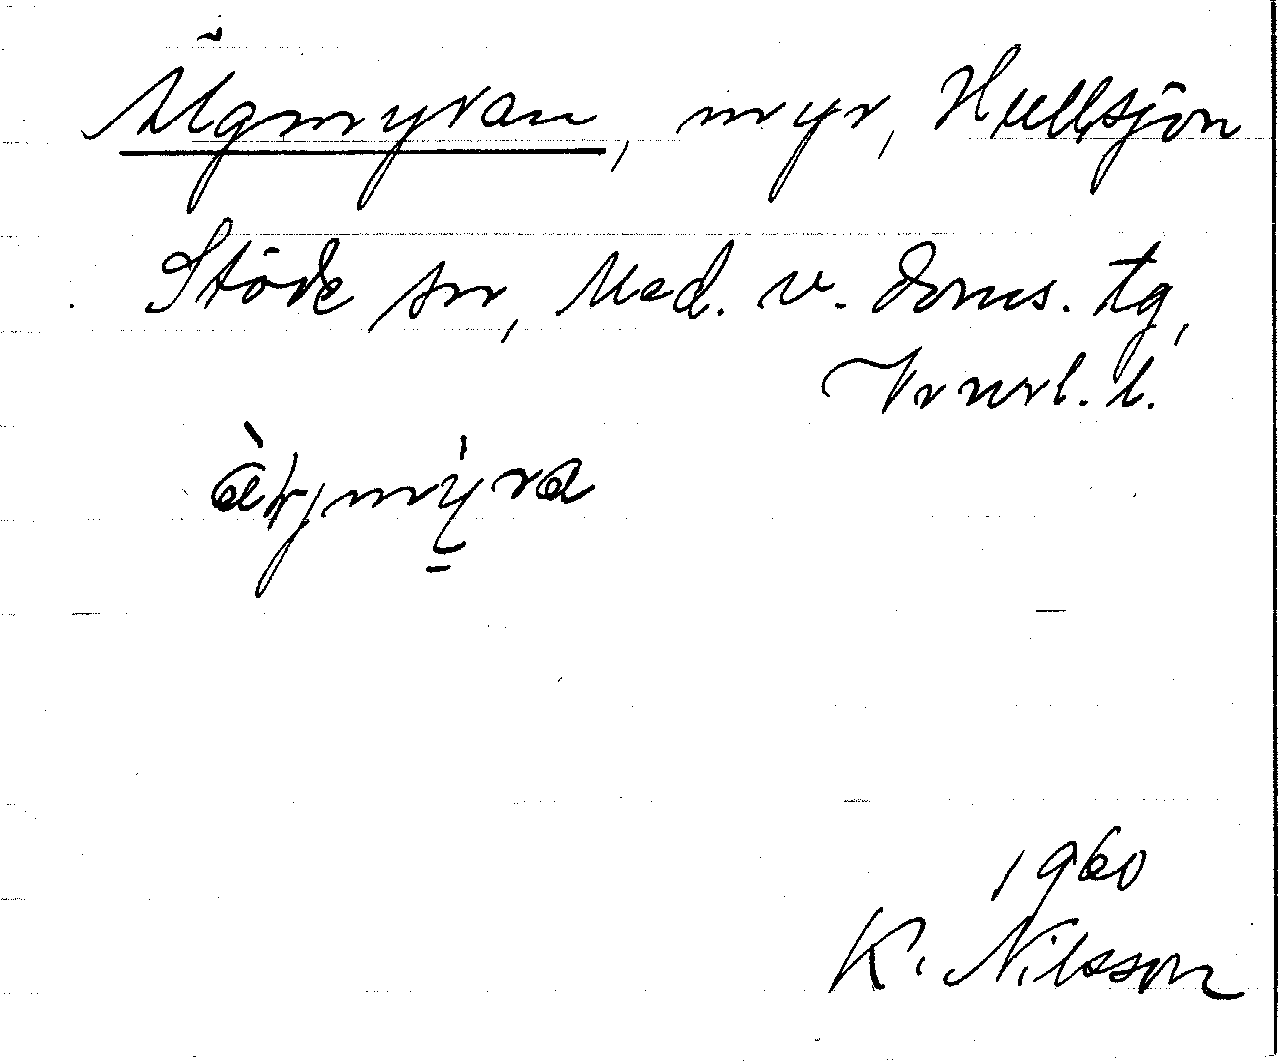 Älgmyran, myr, Hullsjön
Stöde sn, Med. v. doms. tg,
Vrnrl. l.
1960
K. Nilsson